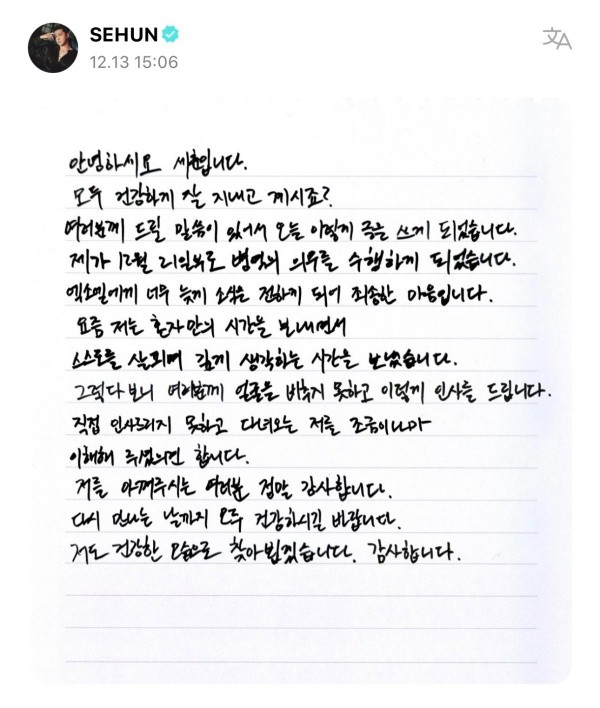 SEHUN
12.13 15:06
안녕하세요 세훈입니다.
모두 건강하게 잘 지내고 계시죠?
여러분께 드릴 말씀이 있어서 오늘 이렇게 글을 쓰게 되었습니다.
제가 12월 21일부로 병역의 의무를 수행하게 되었습니다.
엑소엘에게 너무 늦게 소식을 전하게 되어 죄송한 마음입니다.
요즘 저는 혼자만의 시간을 보내면서
스스로를 살피며 깊게 생각하는 시간을 보냈습니다.
그렇다보니 여러분께 얼굴을 비추지 못하고 이렇게 인사를 드립니다.
직접 인사드리지 못하고 다녀오는 저를 조금이나마
이해해 주셨으면 합니다.
저를 아껴주시는 여러분 정말 감사합니다.
다시 만나는 날까지 모두 건강하시길 바랍니다.
저도 건강한 모습으로 찾아뵙겠습니다. 감사합니다.